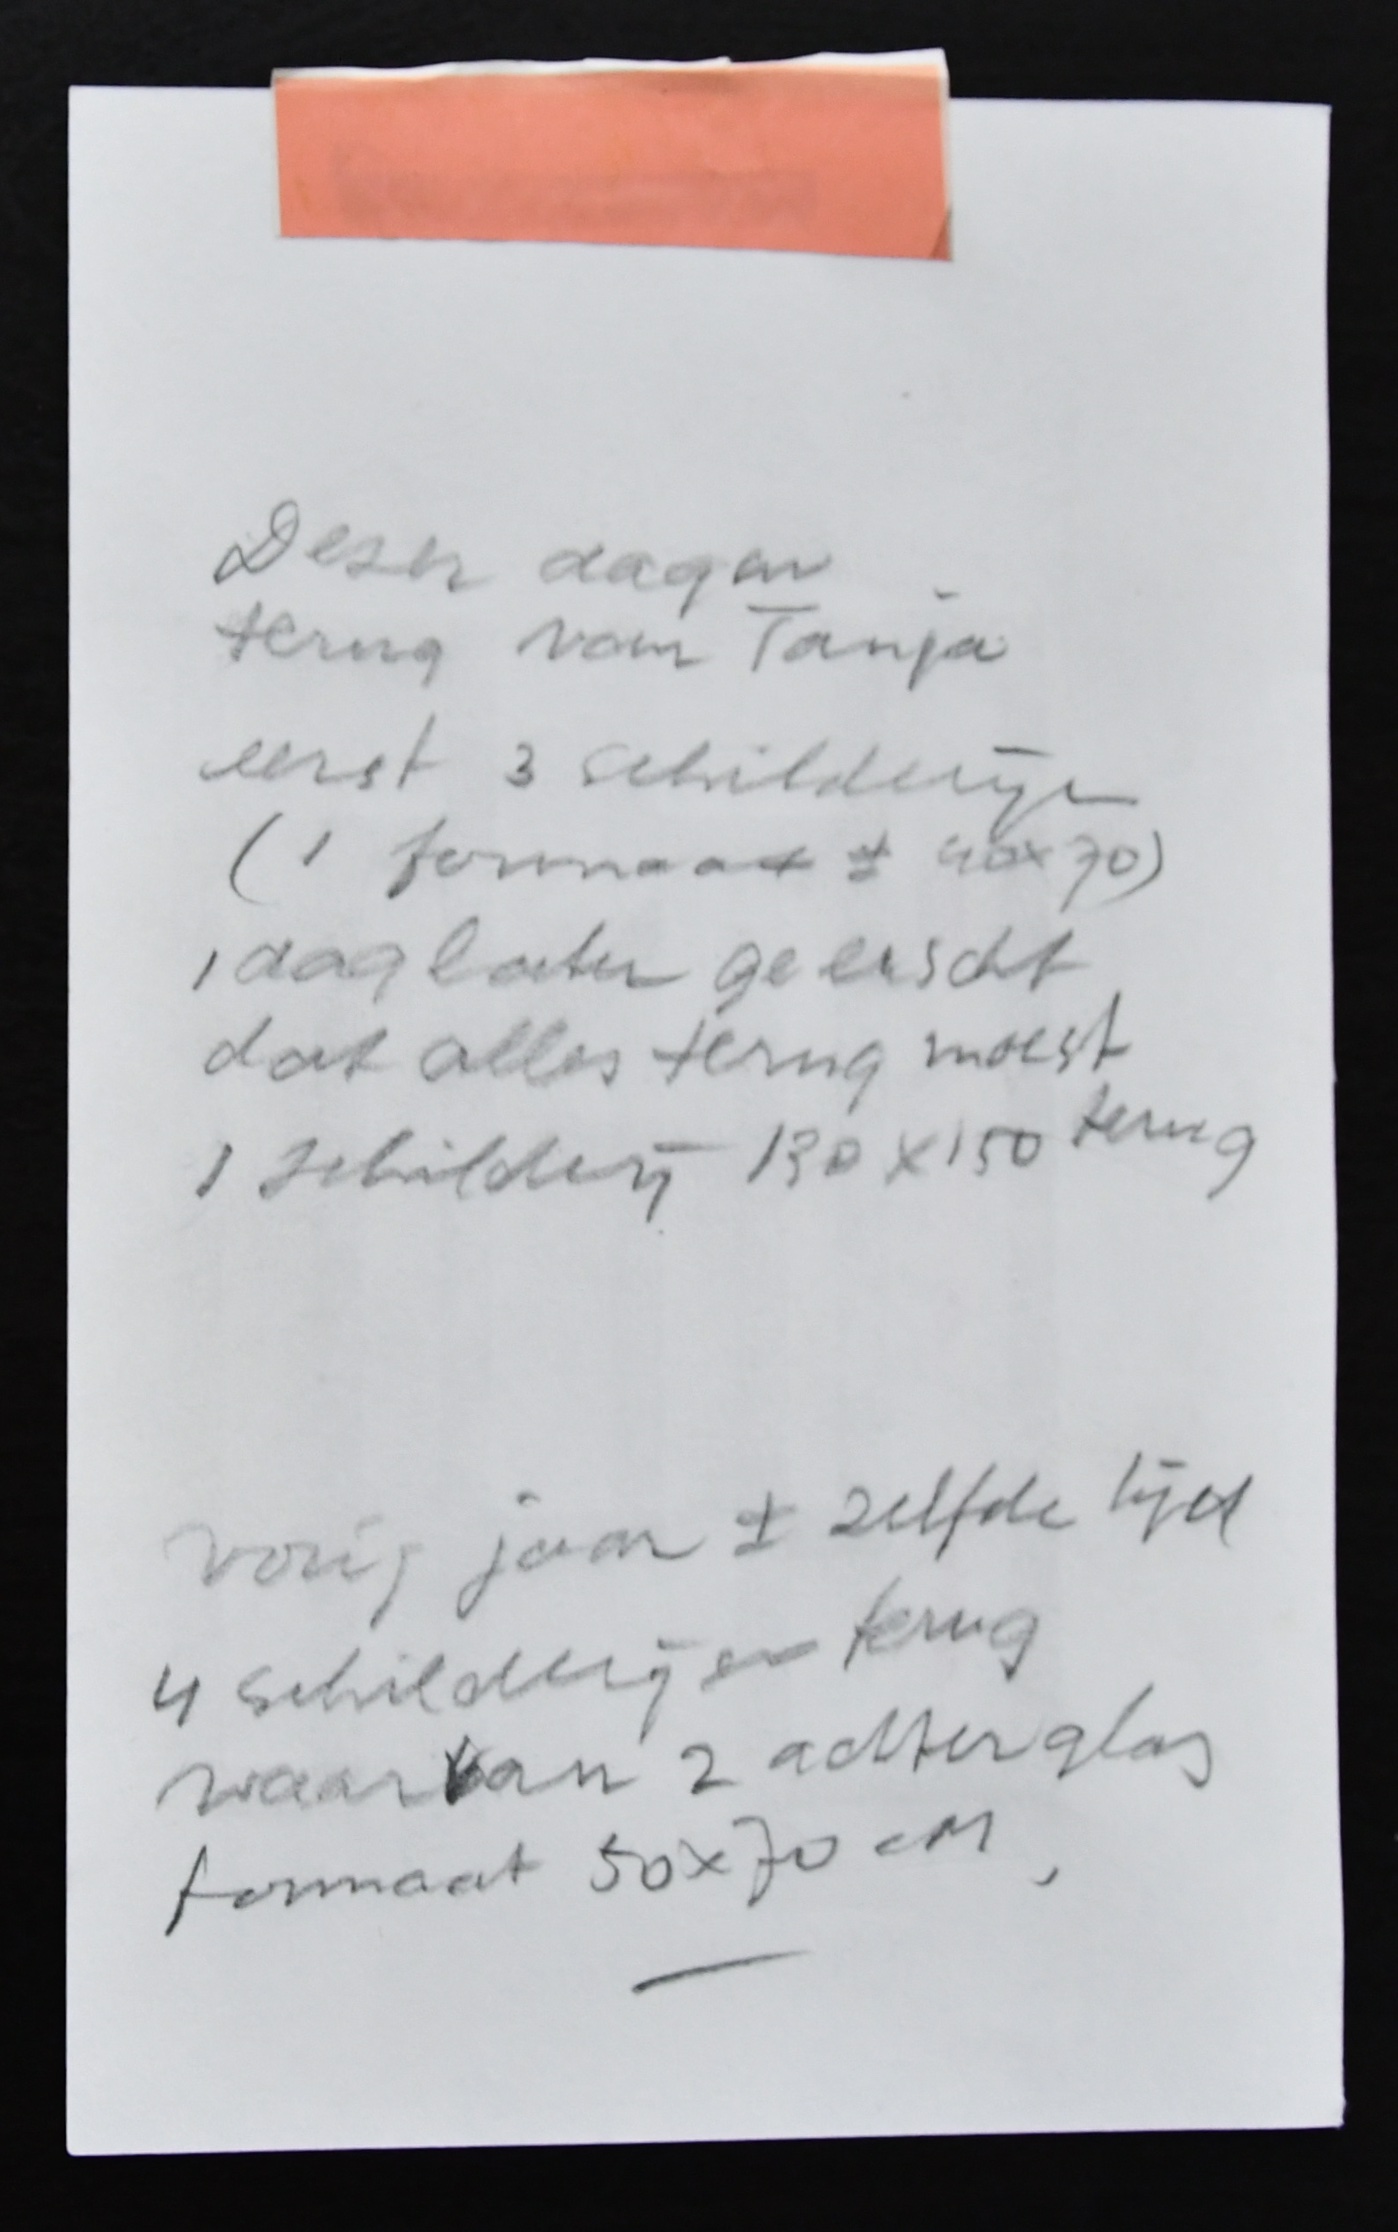 Dezer dagen
terug van Tanja
eerst 3 schilderijen
(1 formaat ± 40x70)
1 dag later geëischt
dat alles terug moest
1 schilderij 130 x 150 terug
vorig jaar ± zelfde tijd
4 schilderijen terug
waarvan 2 achter glas
formaat 50x70 cM,